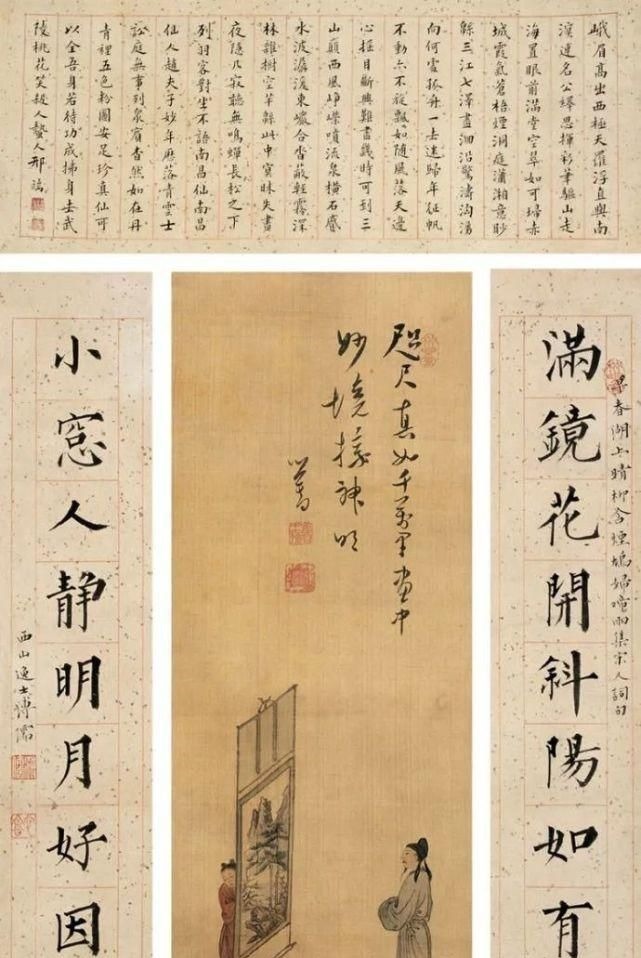 峨眉高出西極天羅浮直與南
溟連名公繹思揮彩筆驅山走
海置眼前滿堂空翠如可掃赤
城霞氣蒼梧煙洞庭瀟湘意眇
緜三江七澤盡洄沿驚濤洶湧
向何處孤舟一去迷歸年征帆
不動亦不旋飄如隨風落天邊
心搖目斷興難盡幾時可到三
山巔西風崢嶸噴流泉橫石蹙
水波潺湲東巖合沓蔽輕霧深
林雜樹空芊緜此中冥昧失晝
夜隱几寂聽無鳴蟬長松之下
列羽客對坐不語南昌仙南昌
仙人趙夫子妙年歷落青雲士
訟庭無事列眾賓杳然如在丹
青裡五色粉圖安足珍真仙可
以全吾身若待功成拂身去武
陵桃花笑殺人 邢端
滿鏡花開斜陽如有
春湖上晴柳含煙鳩婦喧雨集宋人詞句
咫尺真如千萬里畫中
妙境擬神明
心畬
小窓人靜明月好因
西山逸士溥儒